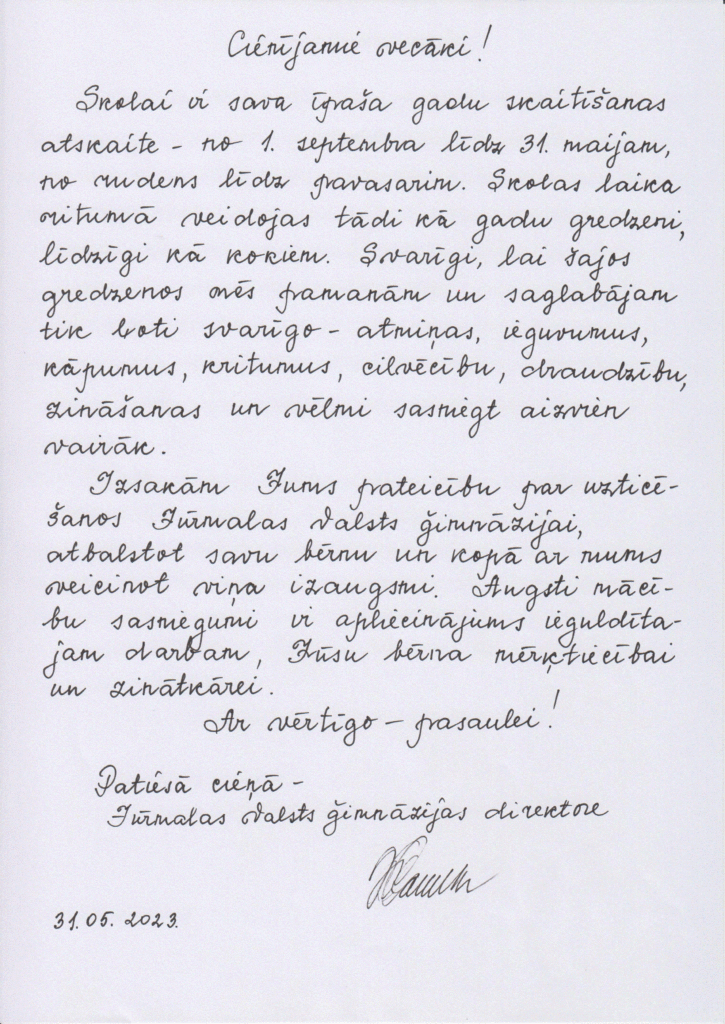 Cienījamie vecāki!
Skolai ir sava īpaša gadu skaitīšanas
atskaite - no 1. septembra līdz 31. maijam,
no rudens līdz pavasarim. Skolas laika
ritumā veidojas tādi kā gadu gredzeni,
līdzīgi kā kokiem. Svarīgi, lai šajos
gredzenos mēs pamanām un saglabājam
tik ļoti svarīgo - atmiņas, ieguvumus,
kāpumus, kritumus, cilvēcību, draudzību,
zināšanas un vēlmi sasniegt aizvien
vairāk.
Izsakām Jums pateicību par uzticē-
šanos Jūrmalas Valsts ģimnāzijai,
atbalstot savu bērnu un kopā ar mums
veicinot viņa izaugsmi. Augsti mācī-
bu sasniegumi ir apliecinājums ieguldīta-
jam darbam, Jūsu bērna mērķtiecībai
un zinātkārei.
Ar vērtīgo - pasaulei!
Patiesā cieņā -
Jūrmalas Valsts ģimnāzijas direktore
31.05.2023.